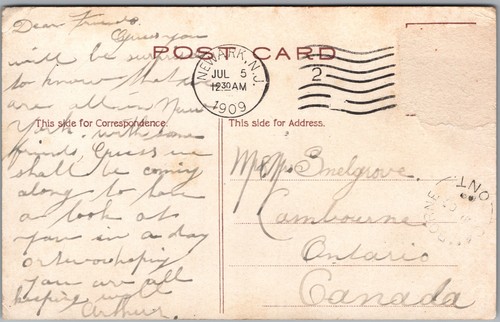 Dear Friends.
Guess you
will be surprised
to know that we
are all in New
York. with some
friends, Guess we
shall be coming
along to have
a look at
you in a day
or two hoping
you are all
keeping well
Arthur.
POST CARD
NEWARK, N.J.
JUL 5
1230 AM
1909
2
This side for Correspondence.
This side for Address.
Mr & Mrs Snelgrove.
Cambourne
Ontario
Canada
ONT